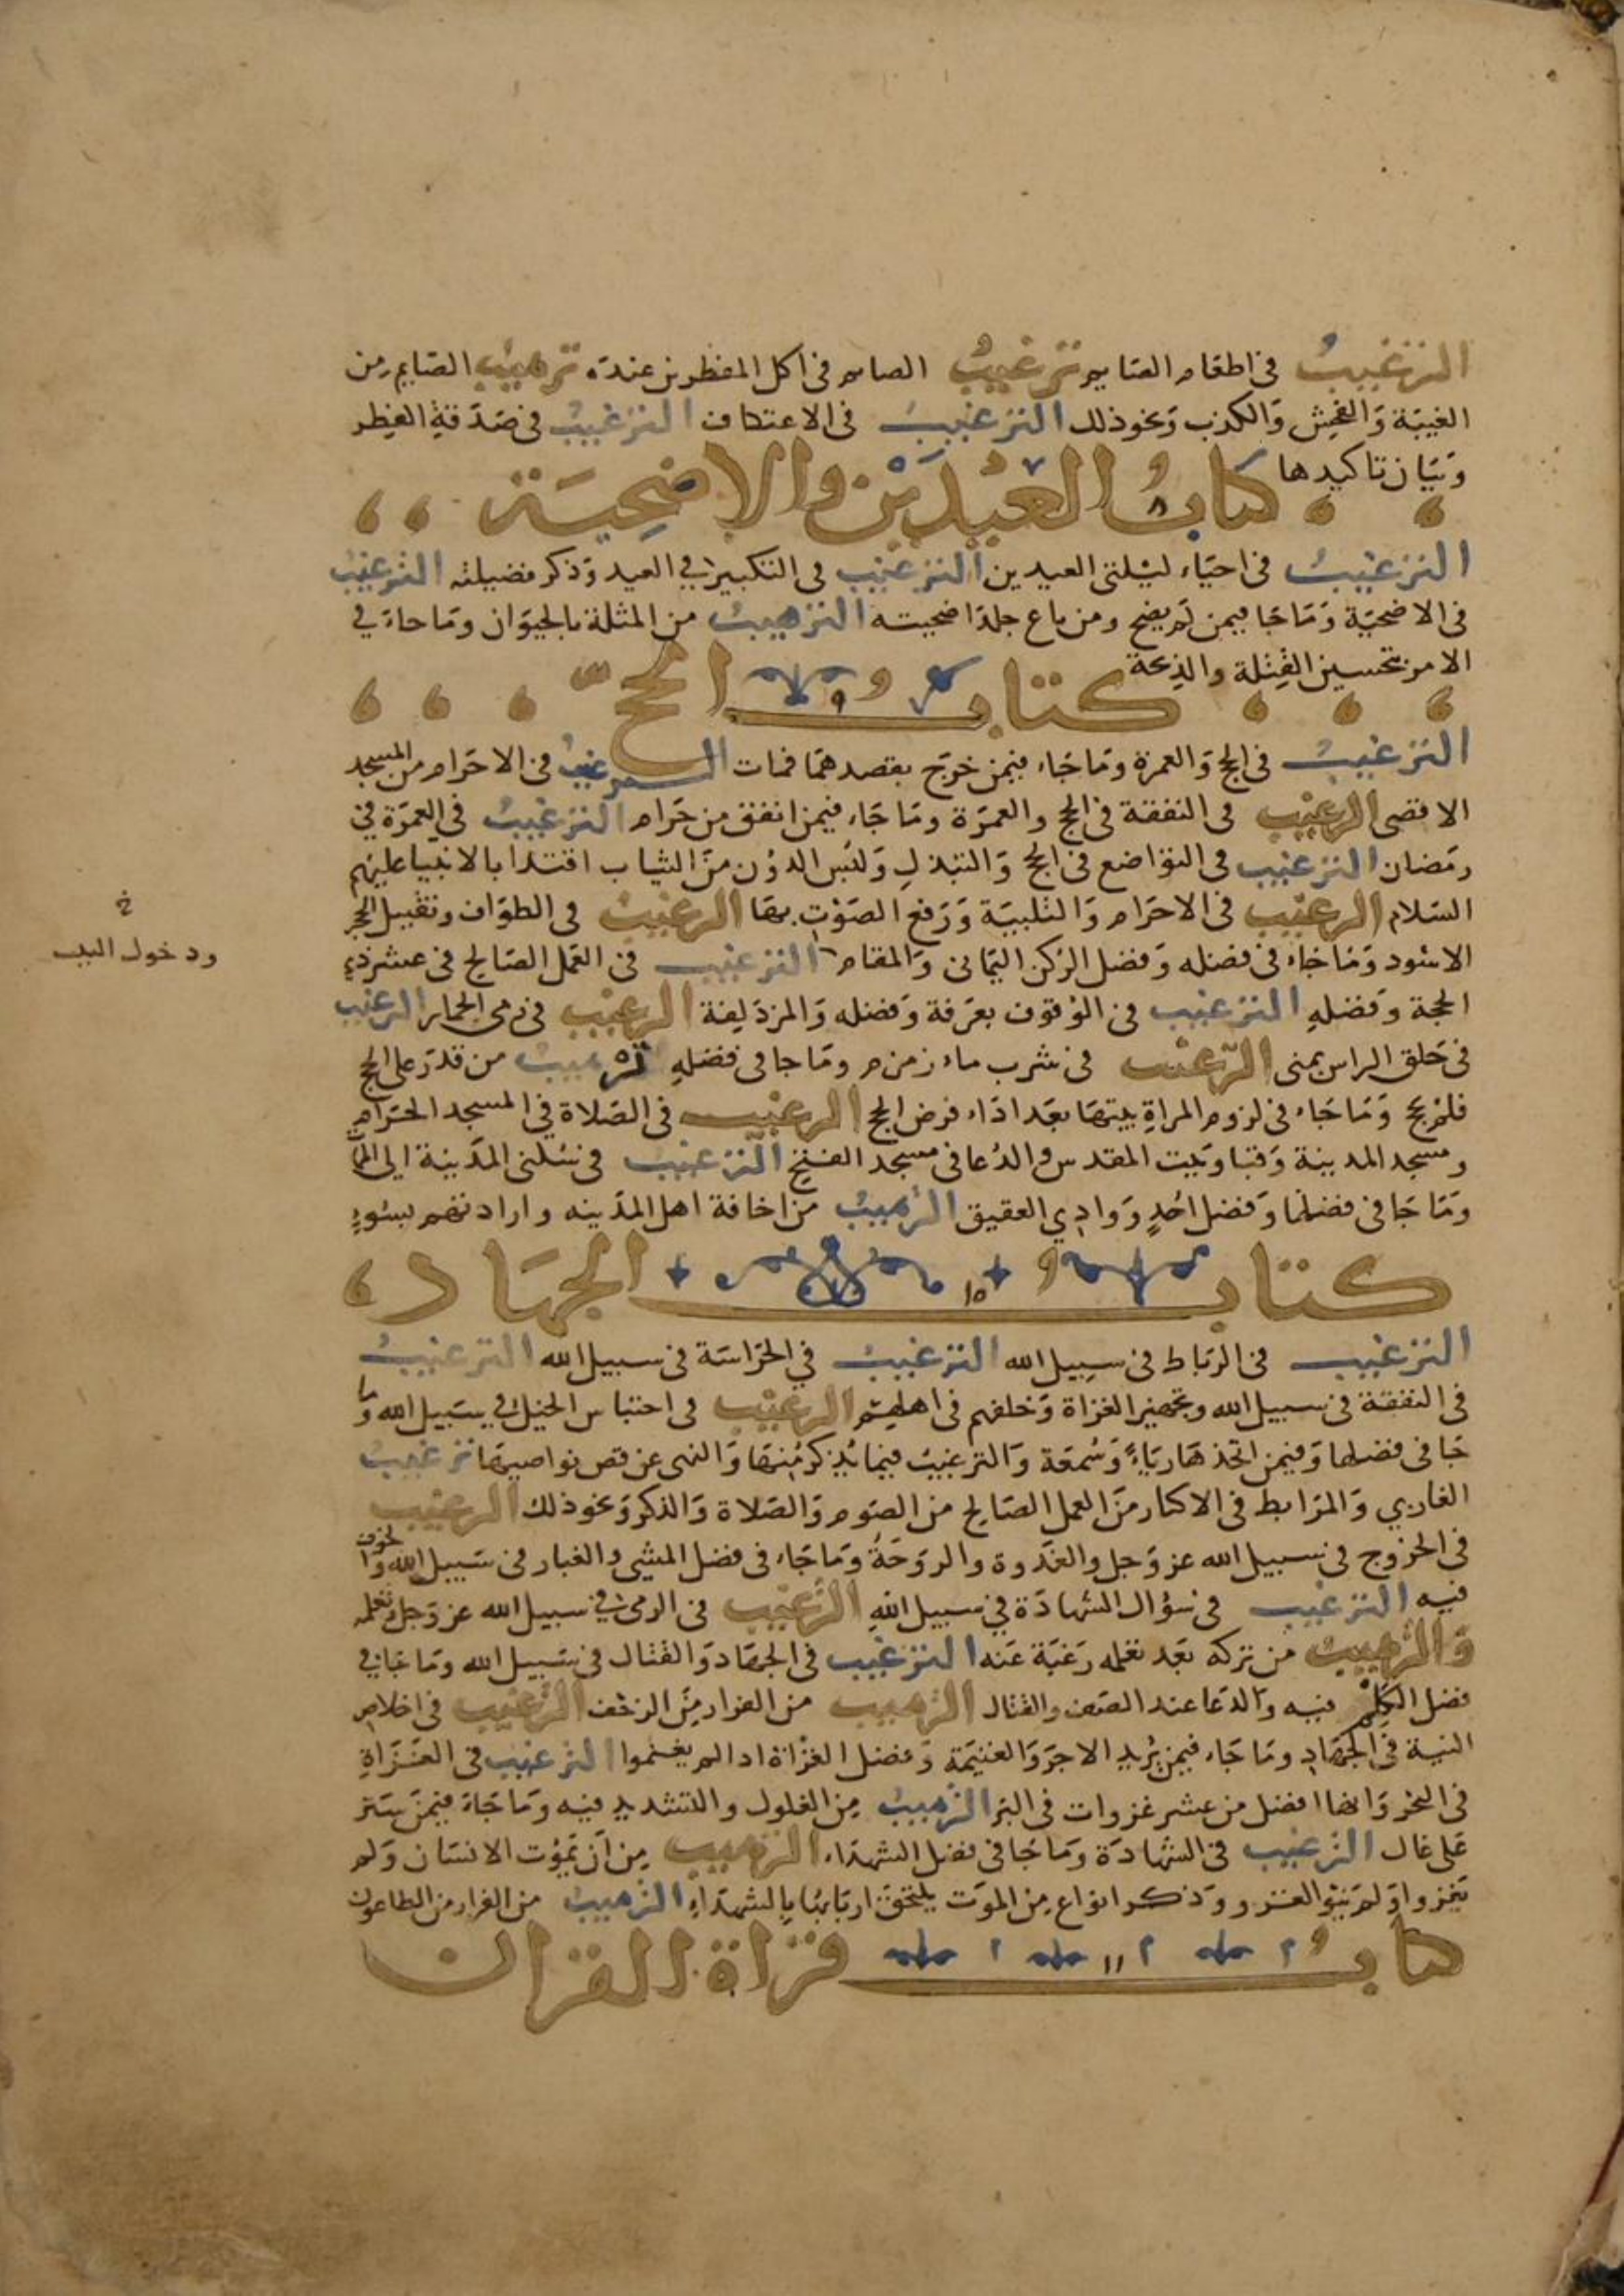 الترغيب في اطعام الصايم ترغيب الصايم في اكل المفطرين عنده ترهيب الصايم من
الغيبة والفحش والكذب ونحو ذلك الترغيب في الاعتكاف الترغيب في صدقة الفطر
وبيان تاكيدها
كتاب العيدين والاضحية
٨
الترغيب في احياء ليلتي العيدين الترغيب في التكبير في العيد وذكر فضيلته الترغيب
في الاضحية وما جا فيمن لم يضح ومن باع جلد اضحيته الترهيب من المثلة بالحيوان وما جاء في
الامر بتحسين القتلة والذبحة
كتاب الحج
٩
الترغيب في الحج والعمرة وما جاء فيمن خرج بقصدهما فمات الترغيب في الاحرام من المسجد
الاقصى الترغيب في النفقة في الحج والعمرة وما جاء فيمن انفق من حرام الترغيب في العمرة في
رمضان الترغيب في التواضع في الحج والتبذل ولبس الدون من الثياب اقتدا بالانبيا عليهم
السلام الترغيب في الاحرام والتلبية ورفع الصوت بها الترغيب في الطواف وتقبيل الحجر
الاسود وما جاء في فضله وفضل الركن اليماني والمقام الترغيب في العمل الصالح في عشر ذي
الحجة وفضله الترغيب في الوقوف بعرفة وفضله والمزدلفة الترغيب في رمي الجمار الترغيب
في حلق الراس بمنى الترغيب في شرب ماء زمزم وما جا في فضله ترهيب من قدر على الحج
فلم يحج وما جاء في لزوم المراة بيتها بعد اداء فرض الحج الترغيب في الصلاة في المسجد الحرام
ومسجد المدينة وقبا وبيت المقدس والدعا في مسجد الفتح الترغيب في سكنى المدينة الى الممات
وما جا في فضلها وفضل احد ووادي العقيق الترهيب من اخافة اهل المدينه وارادتهم بسوء
كتاب الجهاد
١٥
الترغيب في الرباط في سبيل الله الترغيب في الحراسة في سبيل الله الترغيب
في النفقة في سبيل الله وتجهيز الغزاة وخلفهم في اهلهم الترغيب في احتباس الخيل في سبيل الله وما
جا في فضلها وفيمن اتخذها رياء وسمعة والترغيب فيما يذكر منها والنهي عن قص نواصيها ترغيب
الغازي والمرابط في الاكثار من العمل الصالح من الصوم والصلاة والذكر ونحو ذلك الترغيب
في الخروج في سبيل الله عز وجل والغدوة والروحة وما جاء في فضل المشي والغبار في سبيل الله والخوف
فيه الترغيب في سؤال الشهادة في سبيل الله الترغيب في الرمي في سبيل الله عز وجل وتعلمه
والترهيب من تركه بعد تعلمه رغبة عنه الترغيب في الجهاد والقتال في سبيل الله وما جا في
فضل الكلم فيه والدعا عند الصف والقتال الترهيب من الفرار من الزحف الترغيب في اخلاص
النية في الجهاد وما جاء فيمن يريد الاجر والغنيمة وفضل الغزاة اذا لم يغنموا الترغيب في الغزاة
في البحر وانها افضل من عشر غزوات في البر الترهيب من الغلول والتشديد فيه وما جاء فيمن ستر
على غال الترغيب في الشهادة وما جا في فضل الشهداء الترهيب من ان يموت الانسان ولم
يغزو او لم ينو الغزو وذكر انواع من الموت يلتحق اربابها بالشهداء الترهيب من الفرار من الطاعون
كتاب قراة القران
١١
خ
ودخول البيت